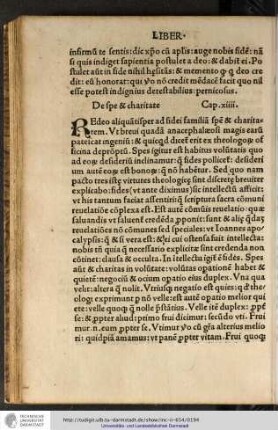 LIBER
infirmũ te sentis: dic xp̃o cũ ap̃lis: auge nobis fidẽ: nã
si quis indiget sapientia postulet a deo: & dabit̃ ei. Po
stulet aũt in fide nihil hęsitãs: & memento ꝙ deo cre
dit: eũ honorat: qui ṽo nõ credit mẽdacẽ facit quo nil
esse potest indignius detestabilius pernicosus.
De spe & charitate Cap.xiiii.
REdeo aliquãtisper ad fidei familiã spẽ & charita
rem. Vt breui quadã anacephalæosi magis earũ
pateat
ingeniũ: &
theologo
ficina depròptũ. Spes igitur est habitus volũtatis quo
ad eo desideriũ inclinamur: fides pollicet̃: desideri
um autẽ est bono nõ habẽtur. Sed quo nam
pacto tres istę virtutes theologicę sint discretę breuiter
explicabo: fides (vt ante diximus) sic intellectũ afficit:
vt his tantum faciat assentiri scriptura sacra cõmuni
reuelatiõe cõplexa est. Est autẽ cõmũis reuelatio: quæ sa
luandis vt saluent̃ credẽda ,pponit: sunt & alię
reuelatiões nõ cõmunes sed speciales: vt Ioannes apo
calypsis: si vera est: & ei cui ostensa fuit intellecta:
nobis tñ quia necessario explicite sint credenda non
cõtinet: clausa & occulta. In ītellectu igit̃ ẽ fides. Spes
aũt & charitas in volũtate: volũtas opationẽ habet &
quietẽ: negociũ & ocium opatio eius duplex. Vna qua
velit: altera nolit. Vtriusq negatio est quies: theo
logi exprimant p nõ velle: est autẽ opatio melior qui
ete: velle quoq nolle p̃stãtius. Velle itẽ duplex: ,ppẽ
se: & ,ppter aliud: primo frui dicimur: secũdo vti. Frui
mur. n. eum ,ppter se. Vtimur ṽo cũ alterius melio
ri: quidpiã amamus: vt panẽ ,ppter vitam. Frui quoq
TECHNISCHE UNIVERSITÄT DARMSTADT
http://tudigit.ulb.tu-darmstadt.de/show/inc-iii-654/0194
Universitäts- und Landesbibliothek Darmstadt